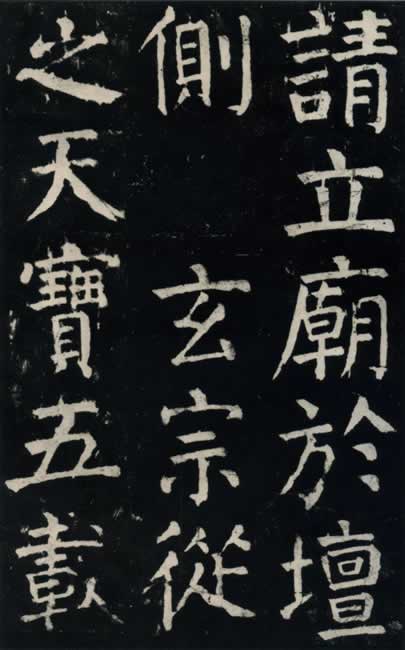 請立廟於壇
側　玄宗從
之天寶五載